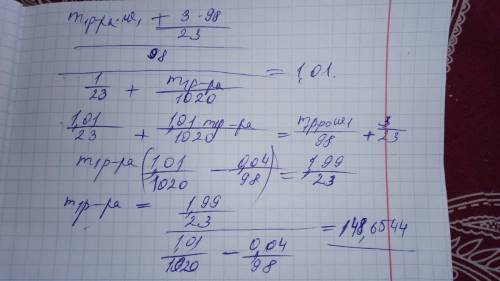 m р-ра · ω₁ + 3·98/23
98
1/23 + m р-ра/1020 = 1,01.
1,01/23 + 1,01 m р-ра/1020 = m р-ра ω₁/98 + 3/23
m р-ра (1,01/1020 − 0,04/98) = 1,99/23
m р-ра = 1,99/23 = 148,6544
1,01/1020 − 0,04/98